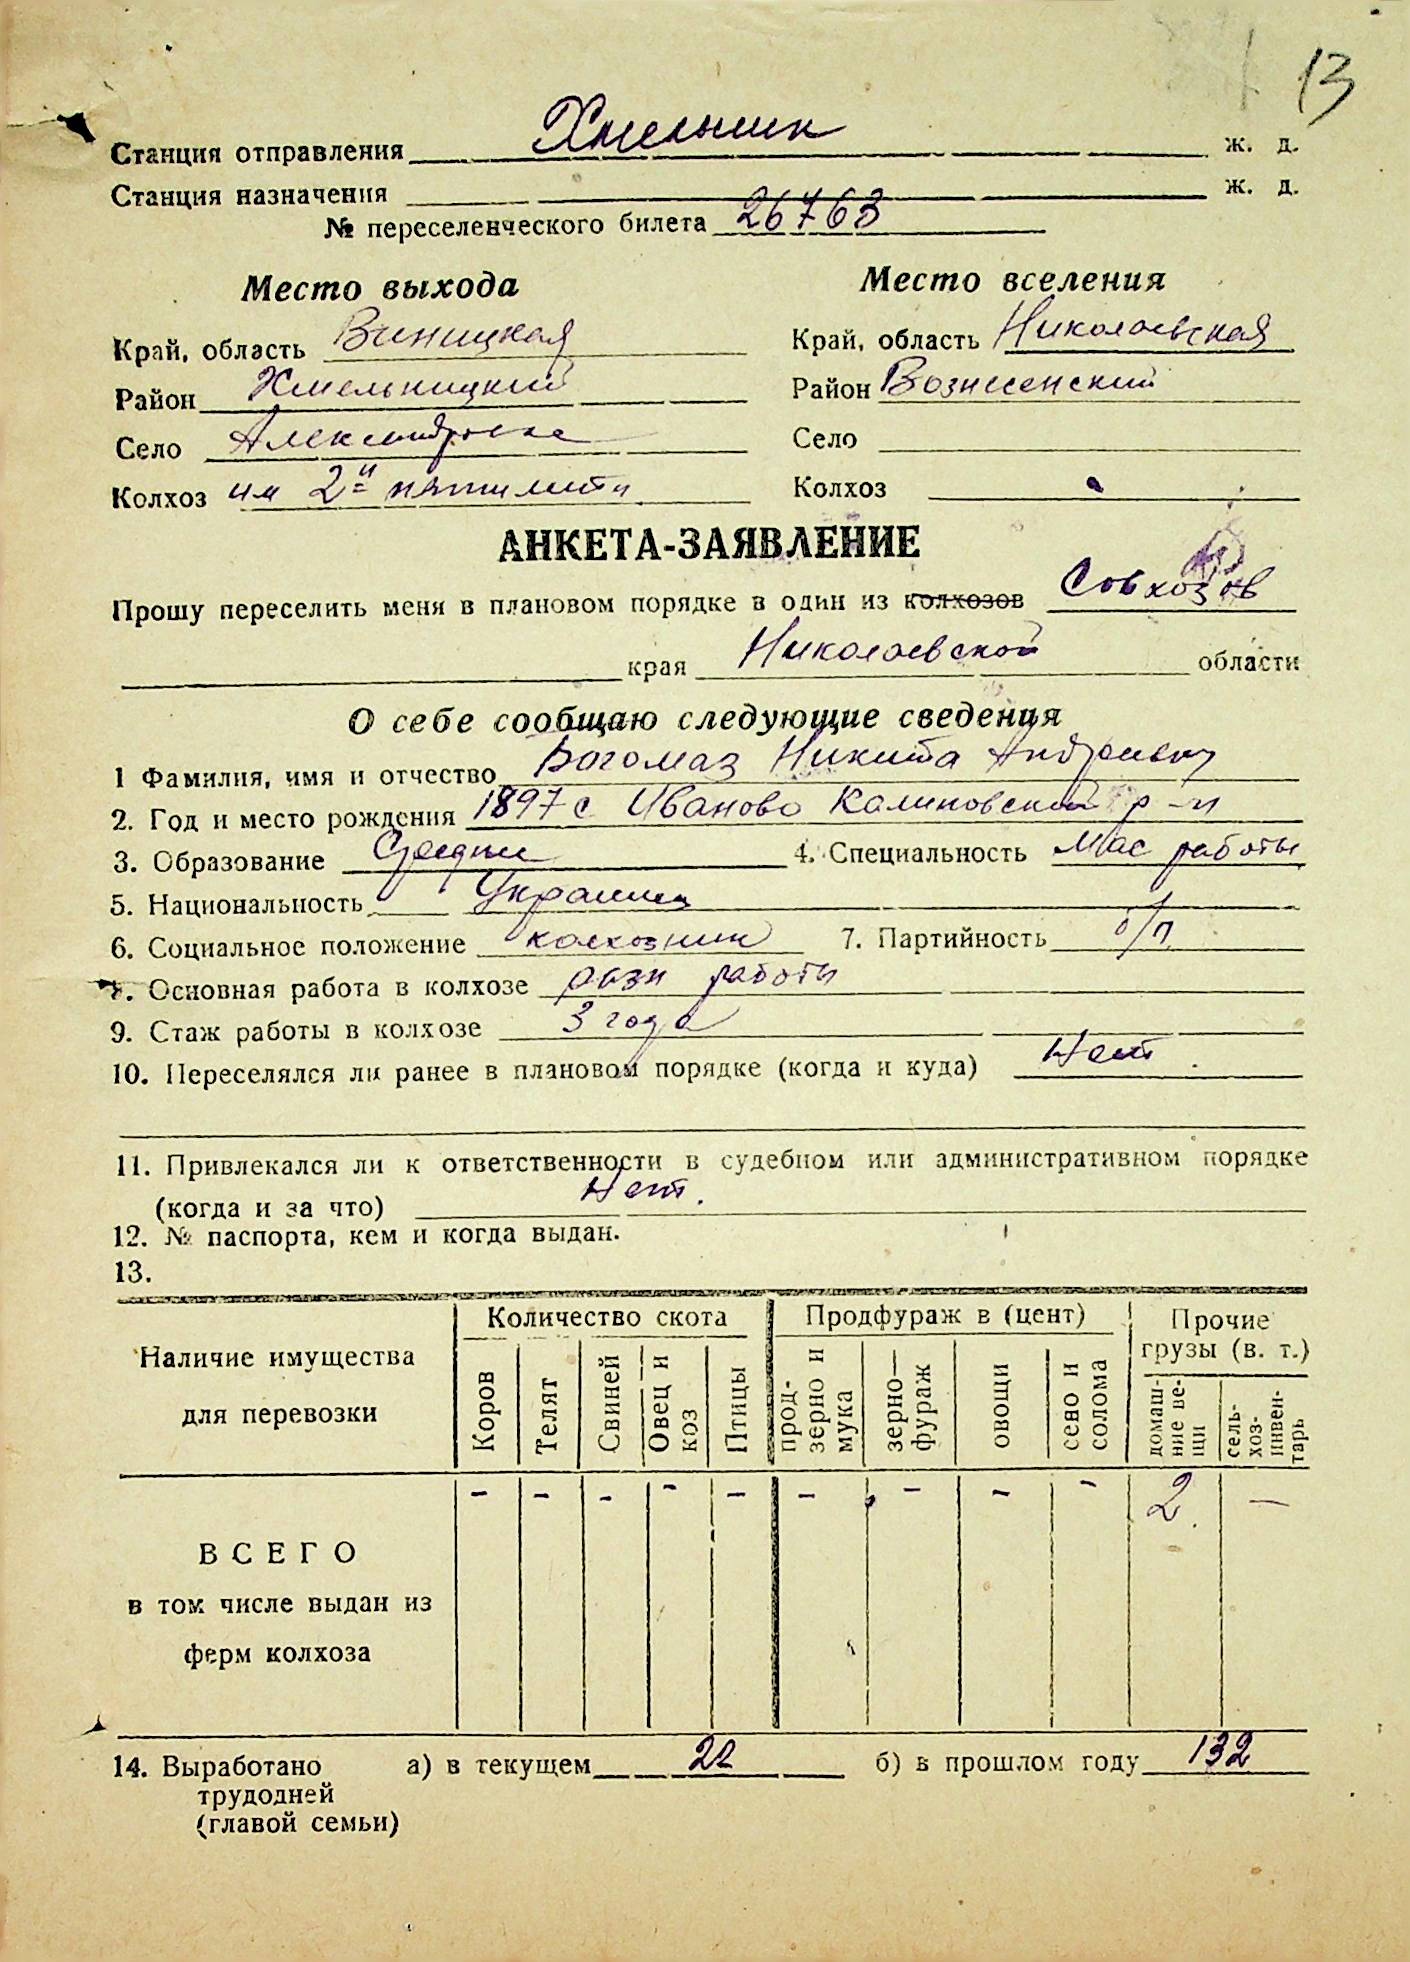 13
Станция отправления Хмельник ж. д.
Станция назначения ж. д.
№ переселенческого билета 26763
Место выхода
Край, область Виницкая
Район Хмельницкий
Село Александровка
Колхоз им 2й пятилетки
Место вселения
Край, область Николаевская
Район Вознесенский
Село
Колхоз
АНКЕТА-ЗАЯВЛЕНИЕ
Прошу переселить меня в плановом порядке в один из колхозов Совхозов
края Николаевской области
О себе сообщаю следующие сведения
1 Фамилия, имя и отчество Богомаз Никита Андреевич
2. Год и место рождения 1897 с Иваново Калиновский р-н
3. Образование Средне 4. Специальность работы
5. Национальность Украинец
6. Социальное положение колхозник 7. Партийность б/п
8. Основная работа в колхозе разн работы
9. Стаж работы в колхозе 3 года
10. Переселялся ли ранее в плановом порядке (когда и куда) Нет
11. Привлекался ли к ответственности в судебном или административном порядке
(когда и за что) Нет.
12. № паспорта, кем и когда выдан.
13.
Наличие имущества для перевозки
Количество скота
Продфураж в (цент)
Прочие грузы (в. т.)
Коров
Телят
Свиней
Овец и коз
Птицы
прод-зерно и мука
зерно—фураж
овощи
сено и солома
домаш-ние ве-щи
сель-хоз-инвен-тарь
- - - - - - - - - 2 —
ВСЕГО
в том числе выдан из
ферм колхоза
14. Выработано а) в текущем 22 б) в прошлом году 132
трудодней
(главой семьи)